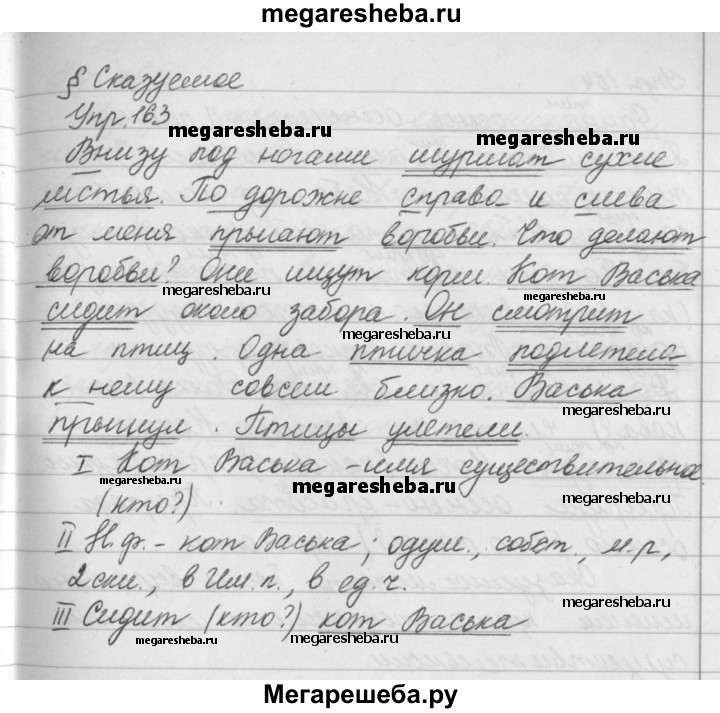 megaresheba.ru
§ Сказуемое
Упр. 163
megaresheba.ru
megaresheba.ru
Внизу под ногами шуршат сухие
листья. По дорожке справа и слева
от меня прыгают воробьи. Что делают
воробьи? Они ищут корм. Кот Васька
megaresheba.ru
megaresheba.ru
сидит около забора. Он смотрит
megaresheba.ru
на птиц. Одна птичка подлетела
к нему совсем близко. Васька
megaresheba.ru
прыгнул. Птицы улетели.
I Кот Васька - имя существительное
megaresheba.ru
megaresheba.ru
(кто?)
II Н.ф. - кот Васька; одуш., собст., м.р.,
2 скл., в Им.п., в ед.ч.
megaresheba.ru
III Сидит (кто?) кот Васька
megaresheba.ru
megaresheba.ru
Мегарешеба.ру